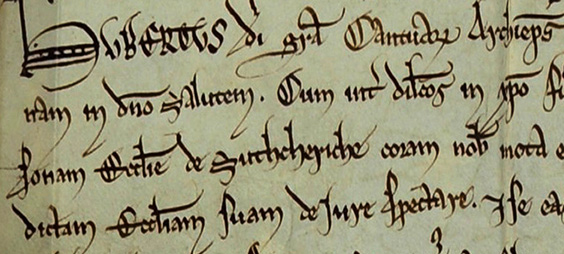 HUBERTUS di gra Cantuar Archieps
nam in dno Salutem. Cum int dilcos in xpo fi
sonam Ecclie de Sutchcheriche coram nob mota e
dictam Eccliam suam de Jure spectare. Ise ea